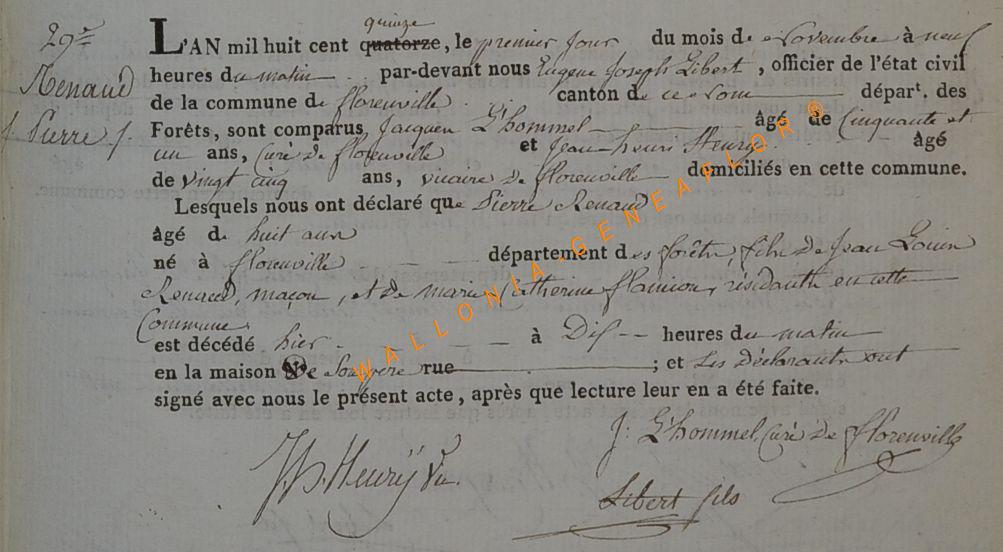 29me
Renaud
Pierre
quinze
L'AN mil huit cent quatorze, le premier Jour du mois de Novembre à neuf
heures du matin par-devant nous Eugene Joseph Libert, officier de l'état civil
de la commune de florenville canton de ce nom départ. des
Forêts, sont comparus Jacques L'hommel âgé de Cinquante et
un ans, Curé de florenville et Jean henri Henry âgé
de vingt cinq ans, vicaire de florenville domiciliés en cette commune.
Lesquels nous ont déclaré que Pierre Renaud
âgé de huit ans
né à florenville département des forêts, fils de Jean Louis
Renaud, maçon, et de marie Catherine flamion, résidants en cette
Commune
est décédé hier à Dix heures du matin
en la maison No de Son père rue ; et Les Déclarants ont
signé avec nous le présent acte, après que lecture leur en a été faite.
J. L'hommel, Curé de florenville
J.h. Henrÿ Vic.
Libert fils
WALLONIA-GENEAFLOR ©